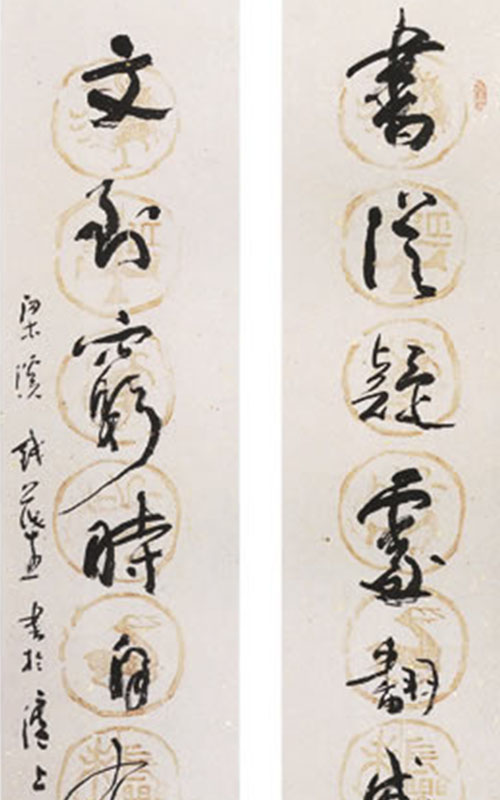 書從疑處翻成
文到窮時自有
梁溪錢書於滬上